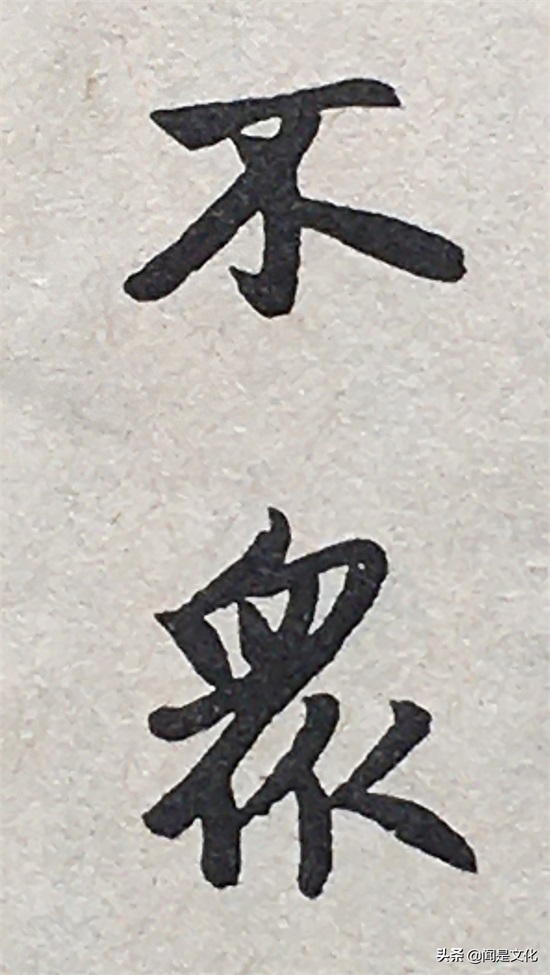 不
眾
头条 @闻是文化